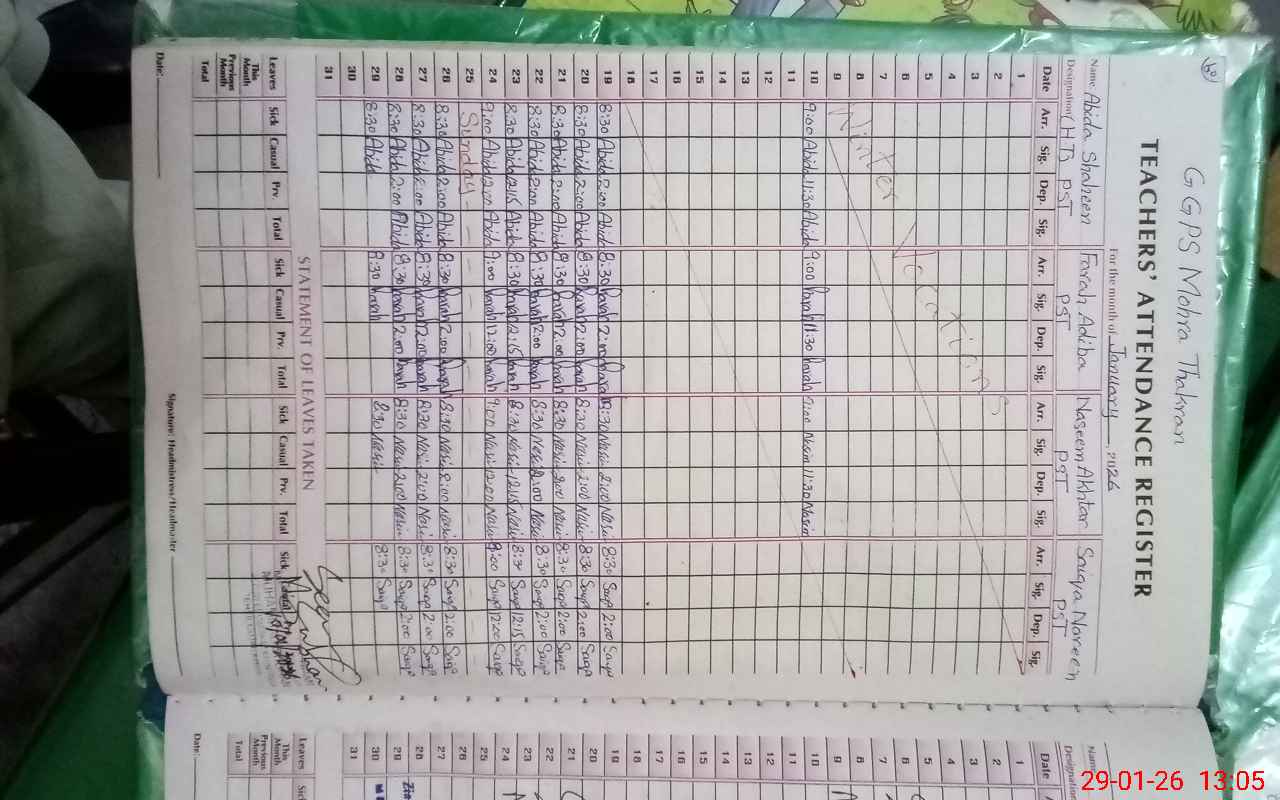 G G P S Mohra Thakran
TEACHERS' ATTENDANCE REGISTER
For the month of January, 2026
Name Abida Shaheen Farah Adiba Naseem Akhtar Saiqa Noreen
Designation (HT) PST PST PST PST
Date Arr. Sig. Dep. Sig. Arr. Sig. Dep. Sig. Arr. Sig. Dep. Sig. Arr. Sig. Dep. Sig.
1
2
3
4
5
6
7
8
9
Winter Vacations
10 9:00 Abida 11:30 Abida 9:00 Farah 11:30 Farah 9:00 Nasim 11:30 Nasim
11
12
13
14
15
16
17
18
19 8:30 Abida 2:00 Abida 8:30 Farah 2:00 Farah 8:30 Nasim 2:00 Nasim 8:30 Saiqa 2:00 Saiqa
20 8:30 Abida 2:00 Abida 8:30 Farah 2:00 Farah 8:30 Nasim 2:00 Nasim 8:30 Saiqa 2:00 Saiqa
21 8:30 Abida 2:00 Abida 8:30 Farah 2:00 Farah 8:30 Nasim 2:00 Nasim 8:30 Saiqa 2:00 Saiqa
22 8:30 Abida 2:00 Abida 8:30 Farah 2:00 Farah 8:30 Nasim 2:00 Nasim 8:30 Saiqa 2:00 Saiqa
23 8:30 Abida 12:15 Abida 8:30 Farah 12:15 Farah 8:30 Nasim 12:15 Nasim 8:30 Saiqa 12:15 Saiqa
24 9:00 Abida 12:00 Abida 9:00 Farah 12:00 Farah 9:00 Nasim 12:00 Nasim 9:00 Saiqa 12:00 Saiqa
25 Sunday
26 8:30 Abida 2:00 Abida 8:30 Farah 2:00 Farah 8:30 Nasim 2:00 Nasim 8:30 Saiqa 2:00 Saiqa
27 8:30 Abida 2:00 Abida 8:30 Farah 2:00 Farah 8:30 Nasim 2:00 Nasim 8:30 Saiqa 2:00 Saiqa
28 8:30 Abida 2:00 Abida 8:30 Farah 2:00 Farah 8:30 Nasim 2:00 Nasim 8:30 Saiqa 2:00 Saiqa
29 8:30 Abida 8:30 Farah 8:30 Nasim 8:30 Saiqa
30
31
STATEMENT OF LEAVES TAKEN
Leaves Sick Casual Prv. Total Sick Casual Prv. Total Sick Casual Prv. Total Sick
This Month
Previous Month
Total
Date: Signature: Headmistress/Headmaster
Name
Designation
Date
1
2
3
4
5
6
7
8
9
10
11
12
13
14
15
16
17
18
19
20
21
22
23
24
25
26
27
28
29
30
31
Leaves
This Month
Previous Month
Total
Date:
29-01-26 13:05